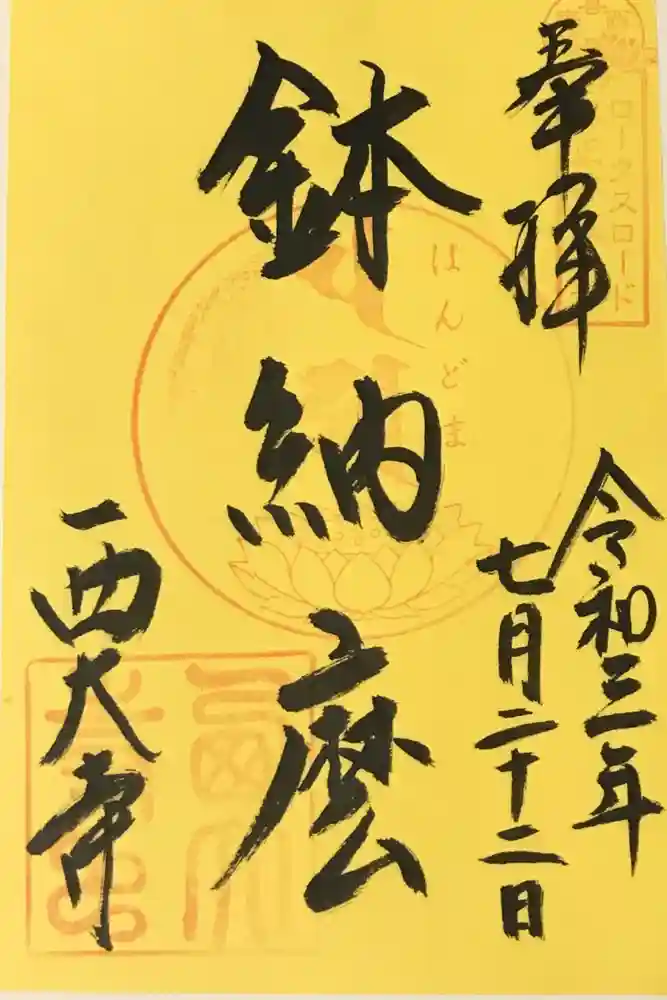 奉拝
ロータスロード
令和三年
七月二十二日
鉢納麼
はんどま
西大寺